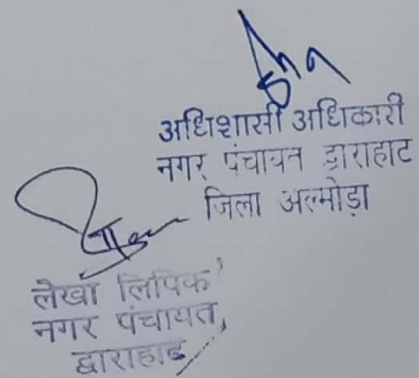 अधिशासी अधिकारी
नगर पंचायत द्वाराहाट
जिला अल्मोड़ा
लेखा लिपिक
नगर पंचायत,
द्वाराहाट